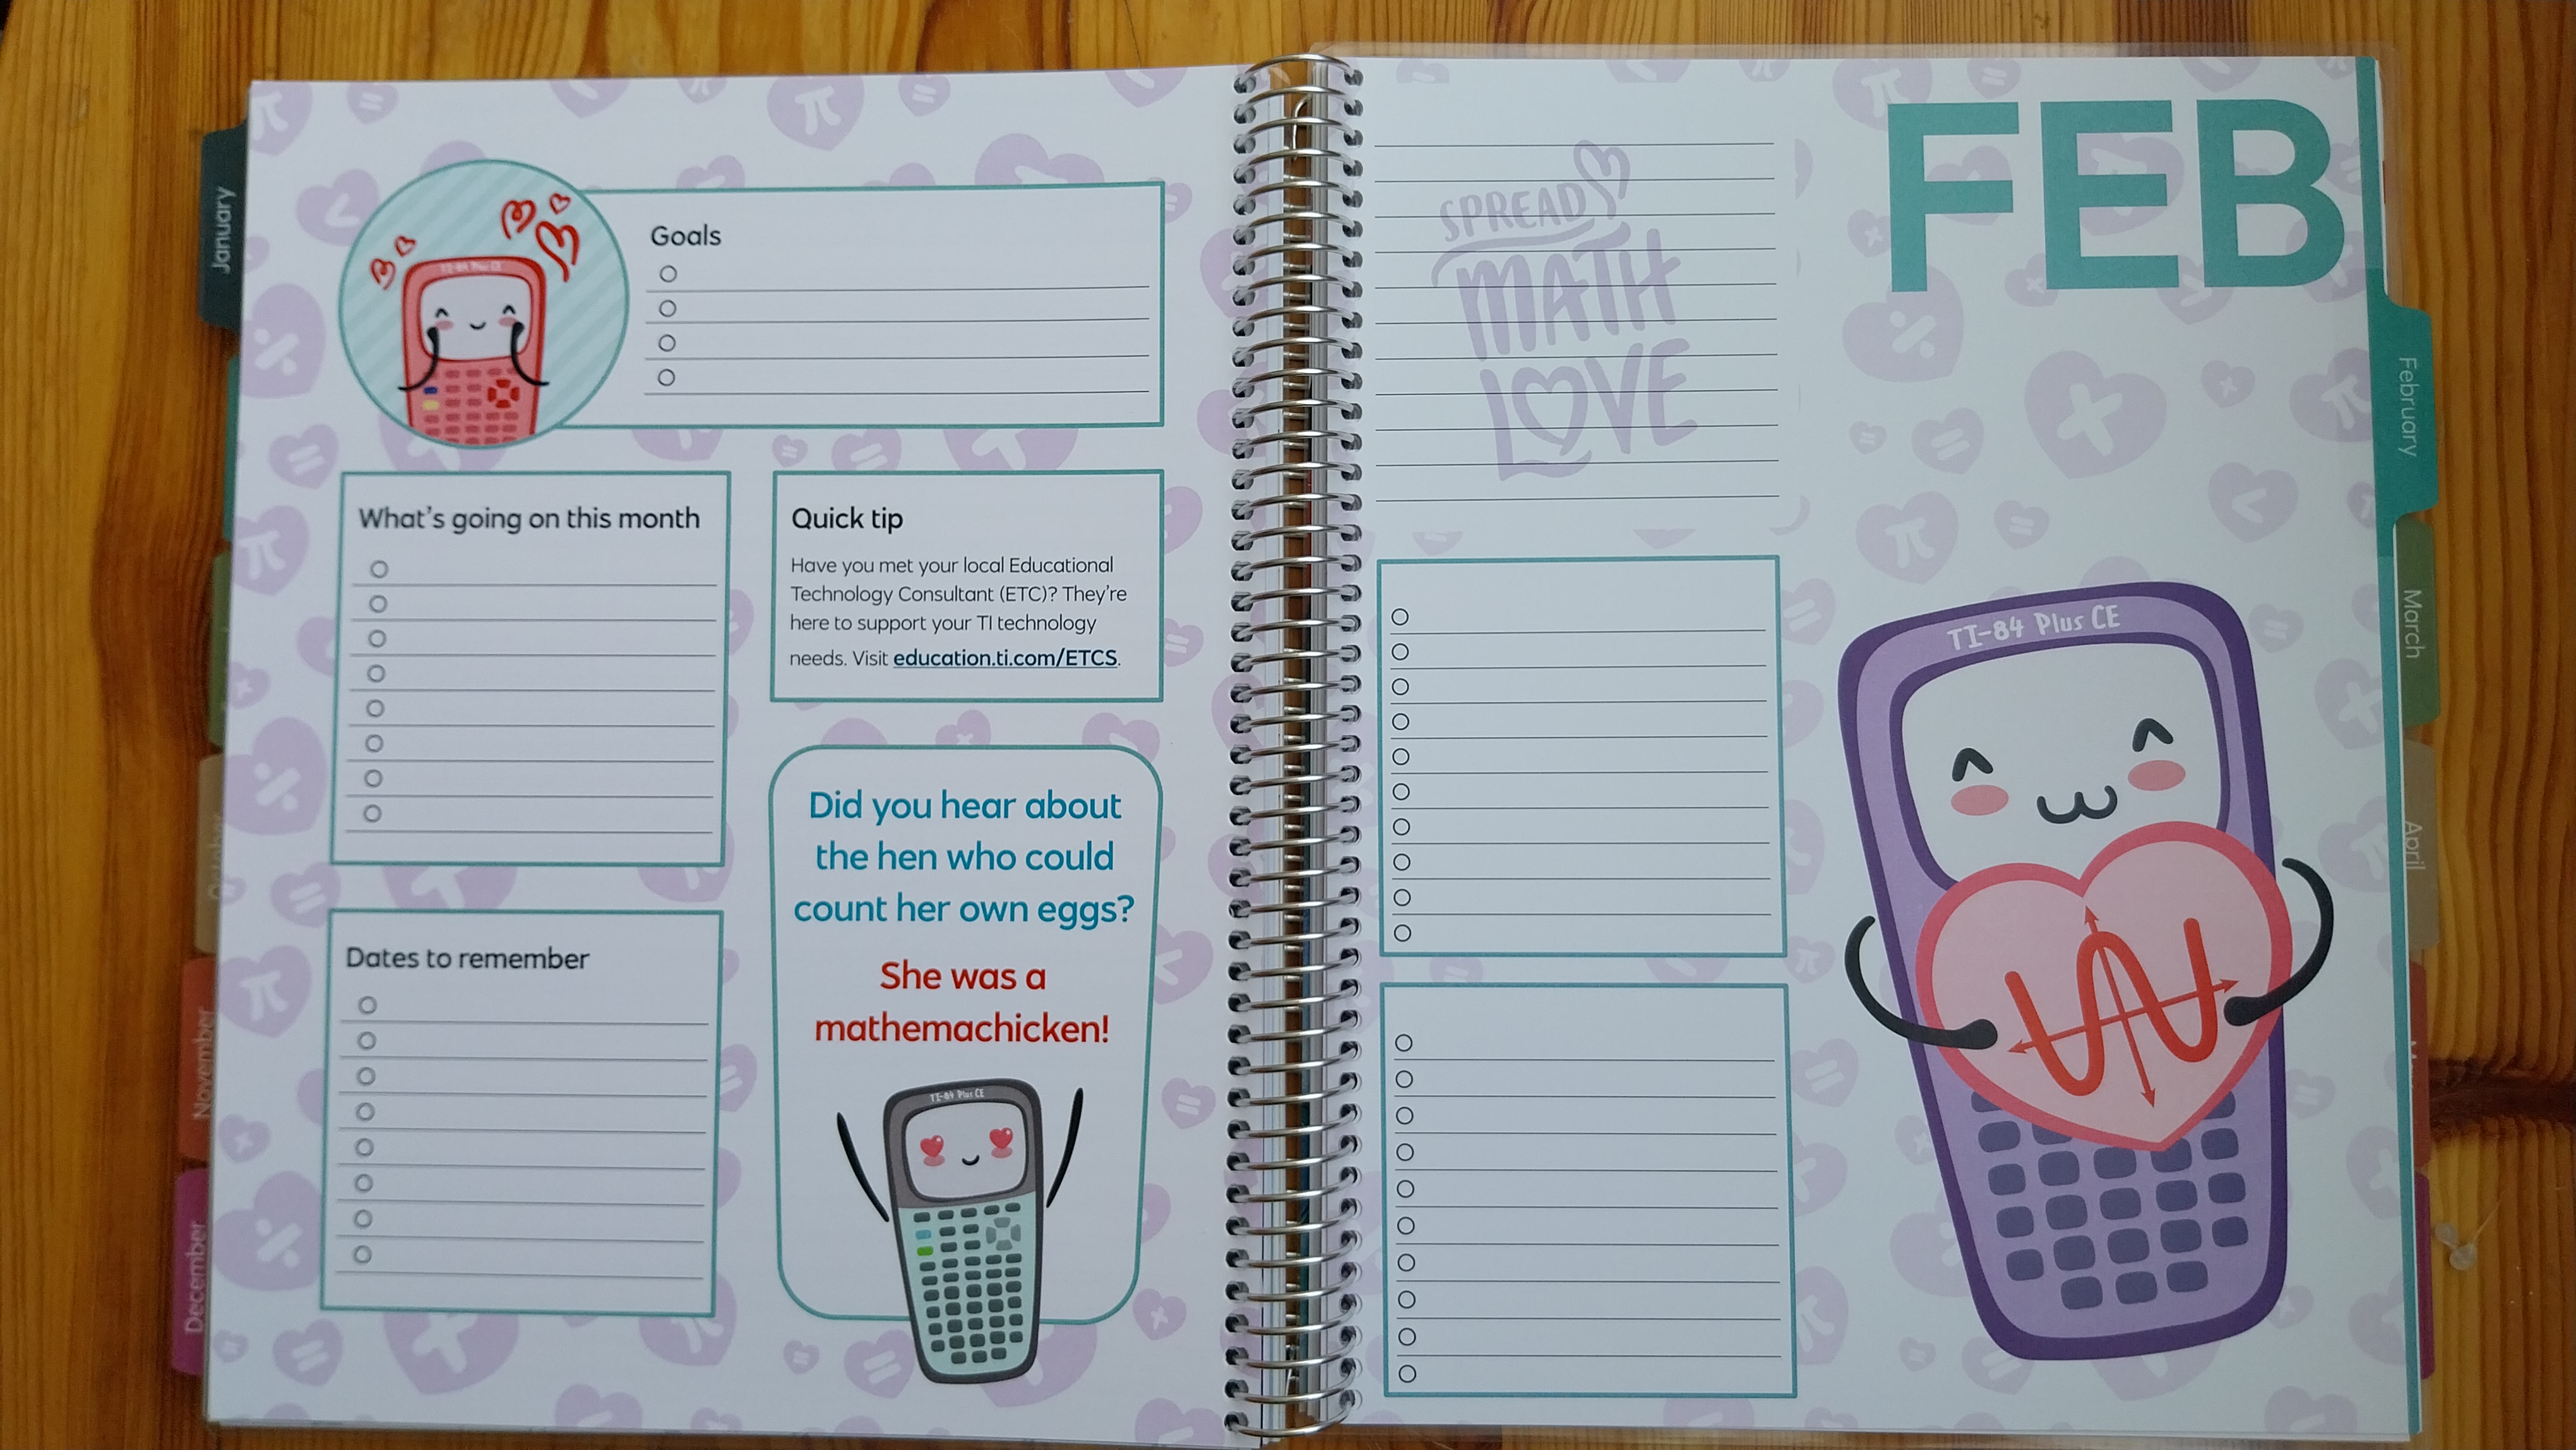 January
TI-84 Plus CE
Goals
What's going on this month
Quick tip
Have you met your local Educational
Technology Consultant (ETC)? They're
here to support your TI technology
needs. Visit education.ti.com/ETCS.
Did you hear about
the hen who could
count her own eggs?
She was a
mathemachicken!
TI-84 Plus CE
Dates to remember
October
November
December
SPREAD
MATH
LOVE
FEB
TI-84 Plus CE
February
March
April